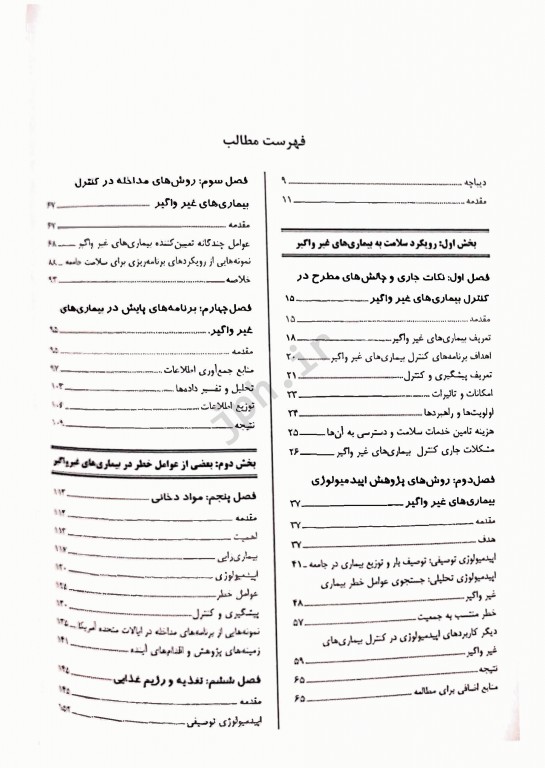 فهرست مطالب
دیباچه ۹
مقدمه ۱۱
بخش اول: رویکرد سلامت به بیماری‌های غیر واگیر
فصل اول: نکات جاری و چالش‌های مطرح در
کنترل بیماری‌های غیر واگیر ۱۵
مقدمه ۱۵
تعریف بیماری‌های غیر واگیر ۱۸
اهداف برنامه‌های کنترل بیماری‌های غیر واگیر ۲۰
تعریف پیشگیری و کنترل ۲۱
امکانات و تاثیرات ۲۳
اولویت‌ها و راهبردها ۲۴
هزینه تامین خدمات سلامت و دسترسی به آن‌ها ۲۵
مشکلات جاری کنترل بیماری‌های غیر واگیر ۲۶
فصل دوم: روش‌های پژوهش اپیدمیولوژی
بیماری‌های غیر واگیر ۳۷
مقدمه ۳۷
هدف ۳۷
اپیدمیولوژی توصیفی: توصیف بار و توزیع بیماری در جامعه ۴۱
اپیدمیولوژی تحلیلی: جستجوی عوامل خطر بیماری
غیر واگیر ۴۸
خطر منتسب به جمعیت ۵۷
دیگر کاربردهای اپیدمیولوژی در کنترل بیماری‌های
غیر واگیر ۵۹
نتیجه ۶۵
منابع اضافی برای مطالعه ۶۵
فصل سوم: روش‌های مداخله در کنترل
بیماری‌های غیر واگیر ۶۷
مقدمه ۶۷
عوامل چندگانه تعیین‌کننده بیماری‌های غیر واگیر ۶۸
نمونه‌هایی از رویکردهای برنامه‌ریزی برای سلامت جامعه ۸۸
خلاصه ۹۳
فصل چهارم: برنامه‌های پایش در بیماری‌های
غیر واگیر ۹۵
مقدمه ۹۵
منابع جمع‌آوری اطلاعات ۹۷
تحلیل و تفسیر داده‌ها ۱۰۳
توزیع اطلاعات ۱۰۶
نتیجه ۱۰۹
بخش دوم: بعضی از عوامل خطر در بیماری‌های غیرواگیر
فصل پنجم: مواد دخانی ۱۱۳
مقدمه ۱۱۳
اهمیت ۱۱۳
بیماری‌زایی ۱۱۶
اپیدمیولوژی ۱۲۰
عوامل خطر ۱۲۵
پیشگیری و کنترل ۱۳۰
نمونه‌هایی از برنامه‌های مداخله در ایالات متحده آمریکا ۱۳۵
زمینه‌های پژوهش و اقدام‌های آینده ۱۴۱
فصل ششم: تغذیه و رژیم غذایی ۱۴۵
مقدمه ۱۴۵
اپیدمیولوژی توصیفی ۱۵۲
jph.ir